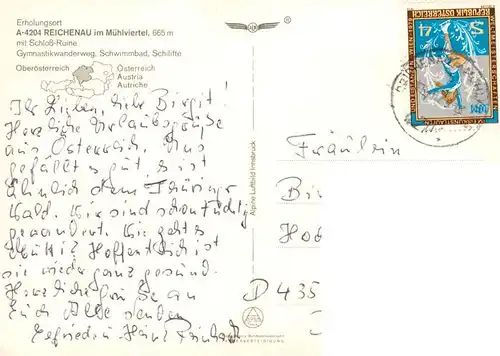 Erholungsort
A-4204 REICHENAU im Mühlviertel, 665 m
mit Schloß-Ruine
Gymnastikwanderweg, Schwimmbad, Schilifte
Oberösterreich
Österreich
Austria
Autriche
Ihr Lieben, liebe Birgit!
Herzliche Urlaubsgrüße
aus Österreich. Uns
gefällt es gut, es ist
ähnlich dem Thüringer
Wald. Wir sind schon tüchtig
gewandert. Wie geht es
Mutti? Hoffentlich ist
sie wieder ganz gesund.
Herzliche Grüße an
Euch Alle senden
Heinz
Alpine Luftbild Innsbruck
REPUBLIK ÖSTERREICH
S 4
Fräulein
Bir
Ho
D 435